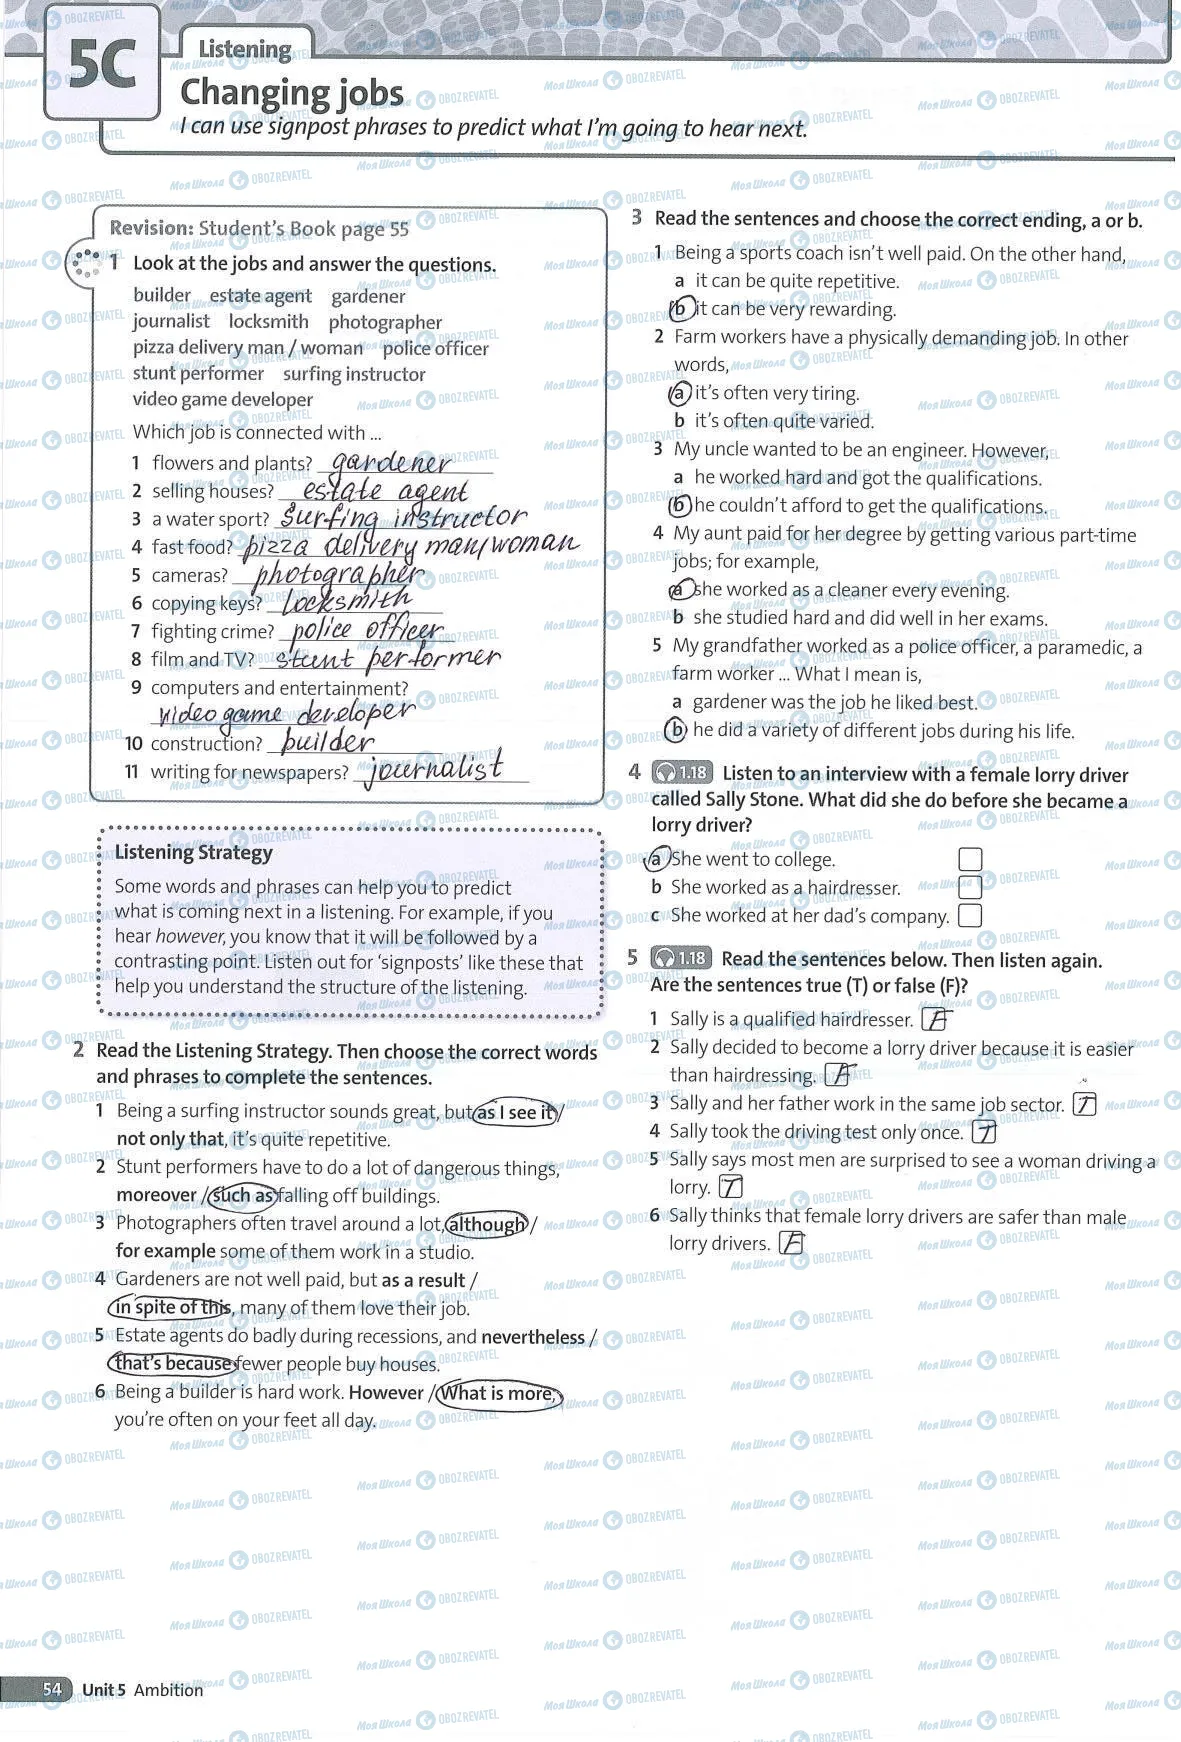 5C
Listening
Changing jobs
I can use signpost phrases to predict what I'm going to hear next.
Revision: Student's Book page 55
1 Look at the jobs and answer the questions.
builder estate agent gardener
journalist locksmith photographer
pizza delivery man / woman police officer
stunt performer surfing instructor
video game developer
Which job is connected with ...
1 flowers and plants? gardener
2 selling houses? estate agent
3 a water sport? surfing instructor
4 fast food? pizza delivery man/woman
5 cameras? photographer
6 copying keys? locksmith
7 fighting crime? police officer
8 film and TV? stunt performer
9 computers and entertainment?
video game developer
10 construction? builder
11 writing for newspapers? journalist
Listening Strategy
Some words and phrases can help you to predict
what is coming next in a listening. For example, if you
hear however, you know that it will be followed by a
contrasting point. Listen out for 'signposts' like these that
help you understand the structure of the listening.
2 Read the Listening Strategy. Then choose the correct words
and phrases to complete the sentences.
1 Being a surfing instructor sounds great, but as I see it /
not only that, it's quite repetitive.
2 Stunt performers have to do a lot of dangerous things,
moreover / such as falling off buildings.
3 Photographers often travel around a lot, although /
for example some of them work in a studio.
4 Gardeners are not well paid, but as a result /
in spite of this, many of them love their job.
5 Estate agents do badly during recessions, and nevertheless /
that's because fewer people buy houses.
6 Being a builder is hard work. However / What is more,
you're often on your feet all day.
3 Read the sentences and choose the correct ending, a or b.
1 Being a sports coach isn't well paid. On the other hand,
a it can be quite repetitive.
b it can be very rewarding.
2 Farm workers have a physically demanding job. In other
words,
a it's often very tiring.
b it's often quite varied.
3 My uncle wanted to be an engineer. However,
a he worked hard and got the qualifications.
b he couldn't afford to get the qualifications.
4 My aunt paid for her degree by getting various part-time
jobs; for example,
a she worked as a cleaner every evening.
b she studied hard and did well in her exams.
5 My grandfather worked as a police officer, a paramedic, a
farm worker ... What I mean is,
a gardener was the job he liked best.
b he did a variety of different jobs during his life.
4 1.18 Listen to an interview with a female lorry driver
called Sally Stone. What did she do before she became a
lorry driver?
a She went to college.
b She worked as a hairdresser.
c She worked at her dad's company.
5 1.18 Read the sentences below. Then listen again.
Are the sentences true (T) or false (F)?
1 Sally is a qualified hairdresser. F
2 Sally decided to become a lorry driver because it is easier
than hairdressing. F
3 Sally and her father work in the same job sector. T
4 Sally took the driving test only once. T
5 Sally says most men are surprised to see a woman driving a
lorry. T
6 Sally thinks that female lorry drivers are safer than male
lorry drivers. F
54 Unit 5 Ambition
МояШкола OBOZREVATEL